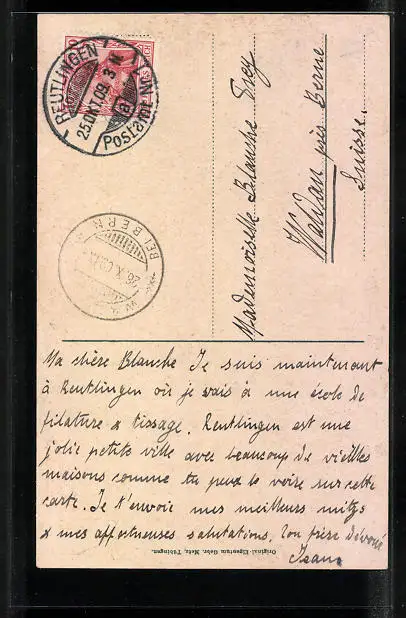 REUTLINGEN
25 OKT 09 3
Postamt No 1
REICH
BEI BERN
26.X.09
Mademoiselle Blanche Frey
Wabern près Berne
Suisse.
Ma chère Blanche Je suis maintenant
à Reutlingen où je vais à une école de
filature & tissage. Reutlingen est une
jolie petite ville avec beaucoup de vieilles
maisons comme tu peux le voire sur cette
carte. Je t'envoie mes meilleurs
& mes affectueuses salutations. Ton frère dévoué
Jean
Original-Eigentum Gebr. Metz, Tübingen.